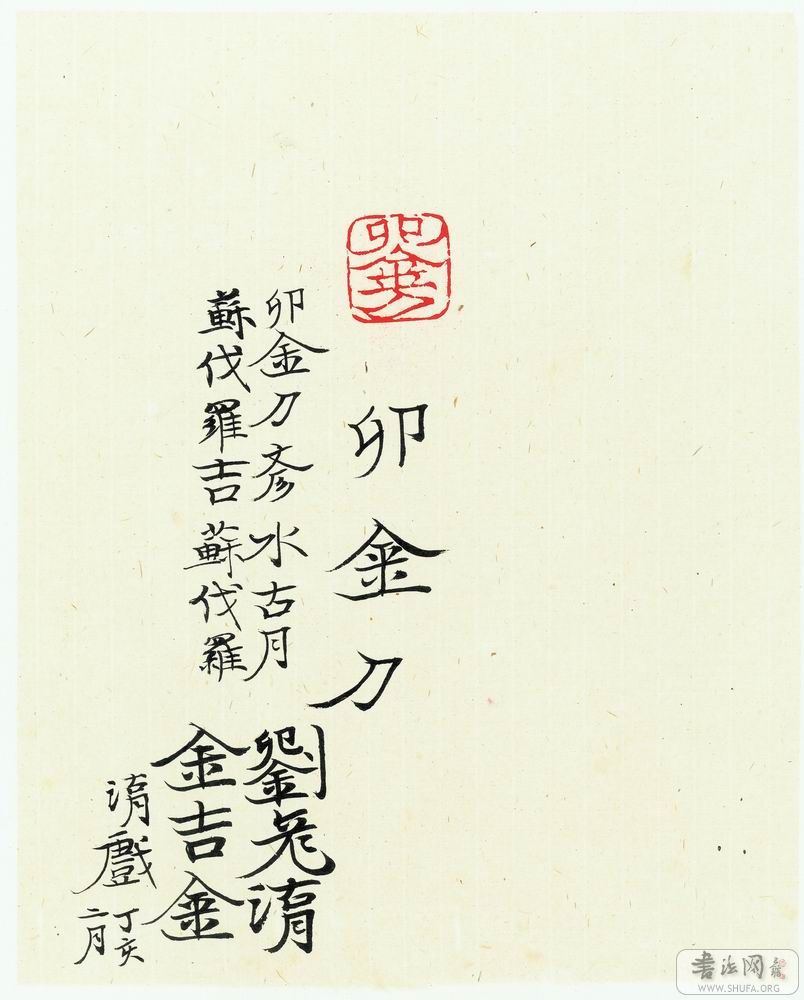 卯金刀
卯金刀
卯金刀彥水古月
蘇伐羅吉蘇伐羅
劉彥湖
金吉金
湖戲
丁亥
二月
書法网
WWW.SHUFA.ORG